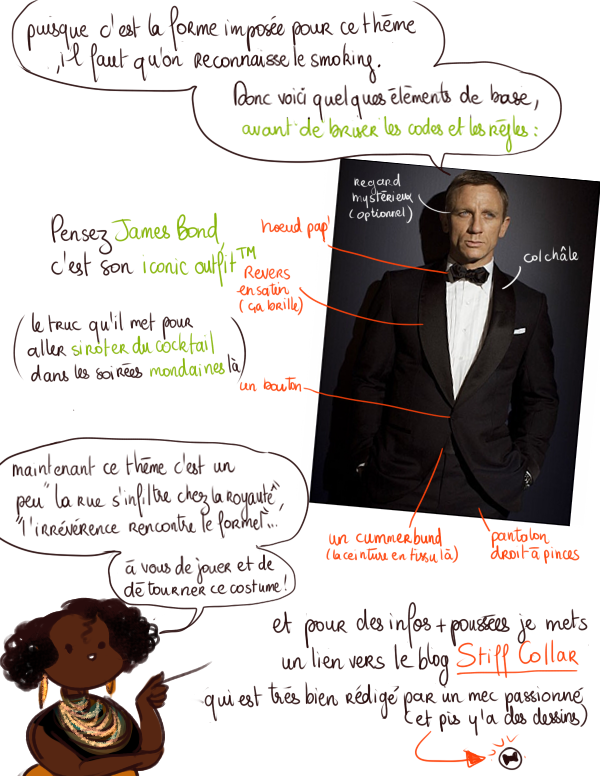 puisque c'est la forme imposée pour ce thème
, il faut qu'on reconnaisse le smoking.
Donc voici quelques éléments de base,
avant de briser les codes et les règles :
Regard
mystérieux
(optionnel)
Pensez James Bond,
c'est son iconic outfit™
noeud pap'
col châle
Revers
en satin
(ça brille)
(le truc qu'il met pour
aller siroter du cocktail
dans les soirées mondaines là)
un bouton
maintenant ce thème c'est un
peu "la rue s'infiltre chez la royauté",
"l'irrévérence rencontre le formel"...
un cummerbund
(la ceinture en tissu là)
pantalon
droit à pinces
à vous de jouer et de
détourner ce costume !
et pour des infos + poussées je mets
un lien vers le blog Stiff Collar
qui est très bien rédigé par un mec passionné
(et pis y'a des dessins)